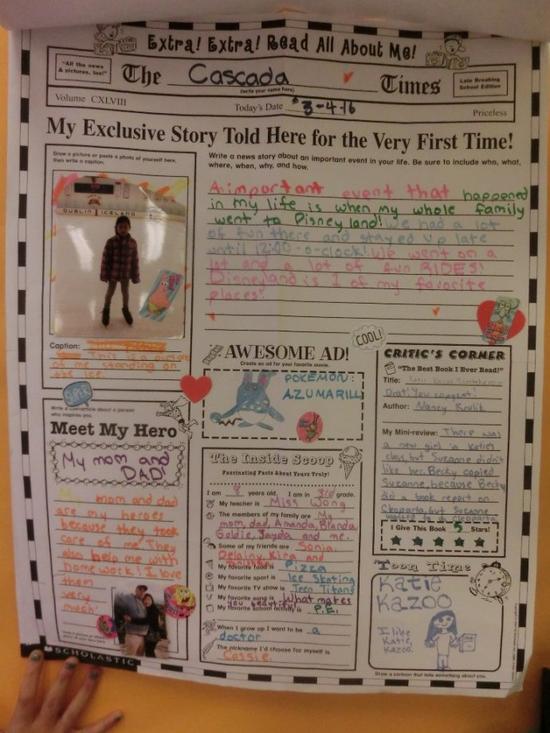 Extra! Extra! Read All About Me!
"All the news
& pictures, too!"
The Cascada Times
(write your name here)
Late Breaking
School Edition
Volume CXLVIII
Today's Date 3-4-16
Priceless
My Exclusive Story Told Here for the Very First Time!
Draw a picture or paste a photo of yourself here,
then write a caption.
DUBLIN ICELAND
Caption:
This is a picture
of me standing on
the ice.
Write a news story about an important event in your life. Be sure to include who, what,
where, when, why, and how.
A important event that happened
in my life is when my whole family
went to Disney land! We had a lot
of fun there and stayed up late
until 12:00-o-clock! We went on a
lot and a lot of fun RIDES!
Disneyland is 1 of my favorite
places!
COOL!
AWESOME AD!
Create an ad for your favorite movie.
POKEMON:
AZUMARILL
CRITIC'S CORNER
"The Best Book I Ever Read!"
Title:
Drat! You
Author: Nancy Krulik
My Mini-review: There was
a new girl in Katie's
class, but Suzanne didn't
like her. Becky copied
Suzanne, because Becky
did a book report on
but Suzanne
I Give This Book 5 Stars!
Write a convention about a person
who inspires you.
Meet My Hero
My mom and
DAD!
mom and dad
are my heroes
because they took
care of me. They
also help me with
homework! I love
them
very
much!
The Inside Scoop
Fascinating Facts About Yours Truly!
I am years old. I am in 3rd grade.
My teacher is Miss Wong
The members of my family are My
mom, dad, Amanda,
Goldie, Jayda and me.
Some of my friends are Sonja,
and
My favorite food is Pizza
My favorite sport is Ice Skating
My favorite TV show is Teen Titans
My favorite song is What makes
you beautiful
My favorite school activity is P.E.
When I grow up I want to be a
doctor
The nickname I'd choose for myself is
Cassie.
Toon Time
KATIE
KAZOO
I like
Katie
Kazoo.
Draw a cartoon that tells something about you.
SCHOLASTIC